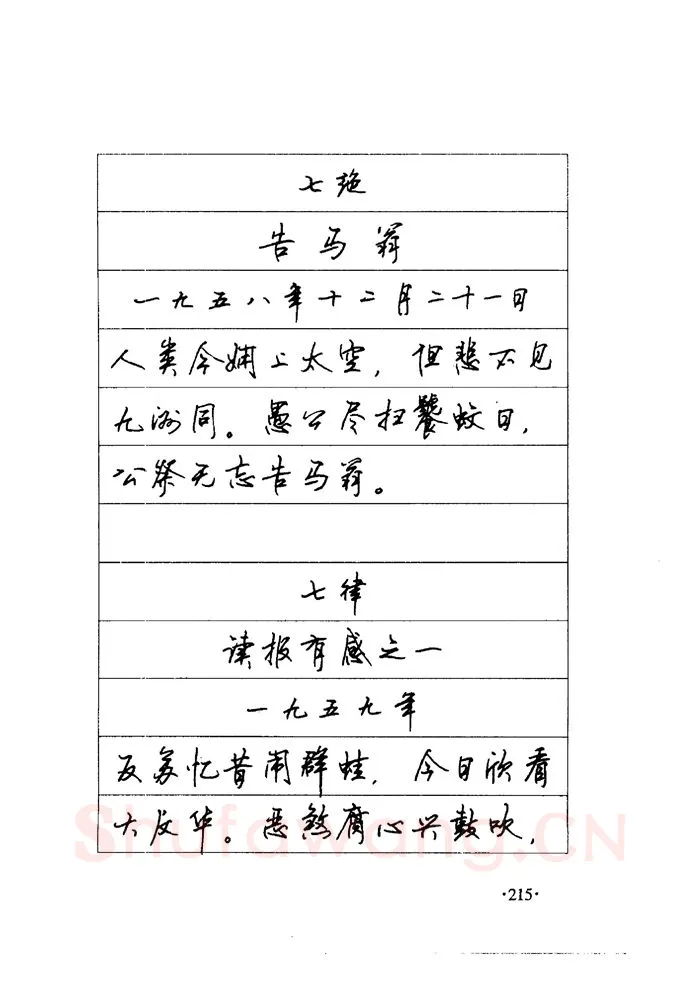 七绝
告马翁
一九五八年十二月二十一日
人类今娴上太空，但悲不见
九洲同。愚公尽扫饕蚊日，
公祭无忘告马翁。
七律
读报有感之一
一九五九年
反苏忆昔闹群蛙，今日欣看
大反华。恶煞腐心兴鼓吹，
Shufawang.CN
·215·